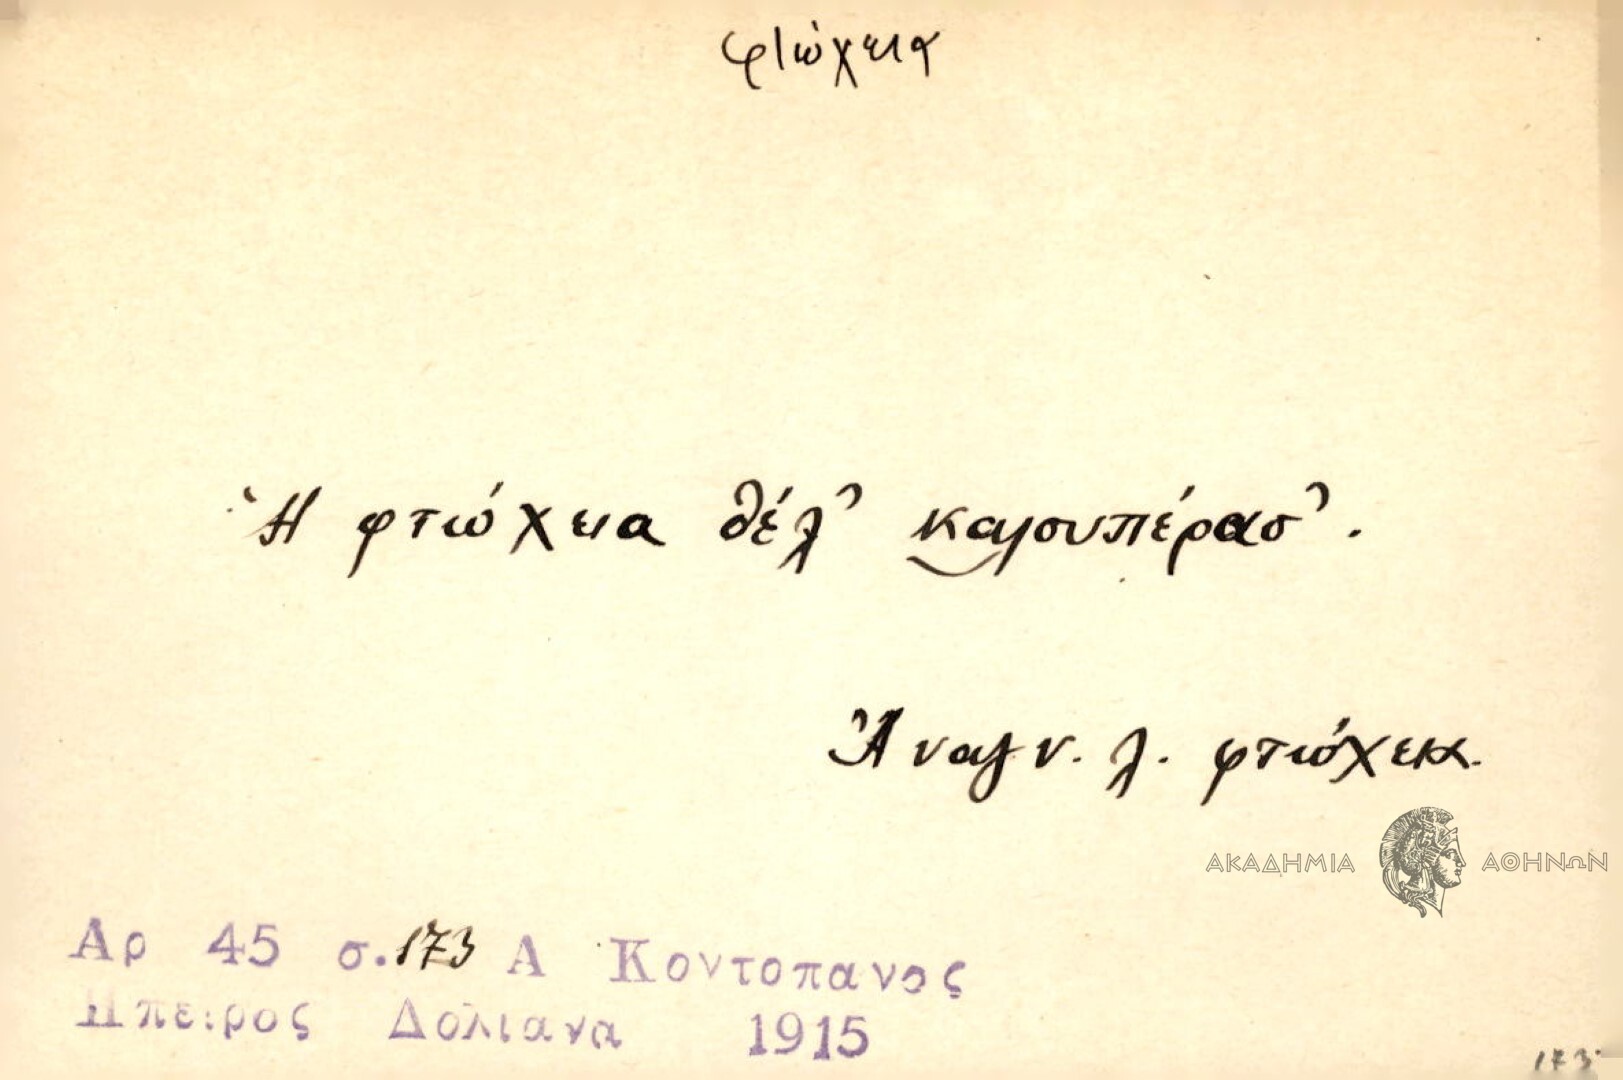 φτώχεια
Ἡ φτώχεια θέλ' καλουπέρασ'.
Ἀναγν. λ. φτώχεια.
ΑΚΑΔΗΜΙΑ ΑΘΗΝΩΝ
Αρ 45 σ. 173 Α Κοντοπανος
Ηπειρος Δολιανα 1915
173